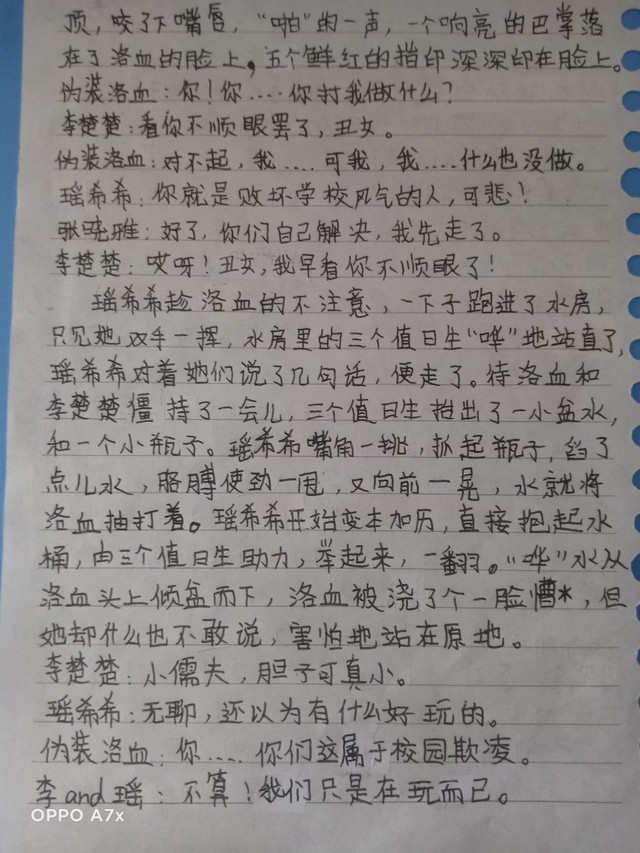 顶，咬了下嘴唇，“啪”的一声，一个响亮的巴掌落
在了洛血的脸上。五个鲜红的指印深深印在脸上。
伪装洛血：你！你……你打我做什么？
李楚楚：看你不顺眼罢了，丑女。
伪装洛血：对不起，我……可我，我……什么也没做。
瑶希希：你就是败坏学校风气的人，可悲！
张晓雅：好了，你们自己解决，我先走了。
李楚楚：哎呀！丑女，我早看你不顺眼了！
瑶希希趁洛血的不注意，一下子跑进了水房，
只见她双手一挥，水房里的三个值日生“哗”地站直了，
瑶希希对着她们说了几句话，便走了。待洛血和
李楚楚僵持了一会儿，三个值日生抬出了一小盆水，
和一个小瓶子。瑶希希嘴角一挑，扒起瓶子，舀了
点儿水，胳膊使劲一甩，又向前一晃，水就将
洛血抽打着。瑶希希开始变本加厉，直接抱起水
桶，由三个值日生助力，举起来，一翻。“哗”水从
洛血头上倾盆而下，洛血被浇了个一脸懵*，但
她却什么也不敢说，害怕地站在原地。
李楚楚：小儒夫，胆子可真小。
瑶希希：无聊，还以为有什么好玩的。
伪装洛血：你……你们这属于校园欺凌。
李and瑶：不算！我们只是在玩而已。
OPPO A7x